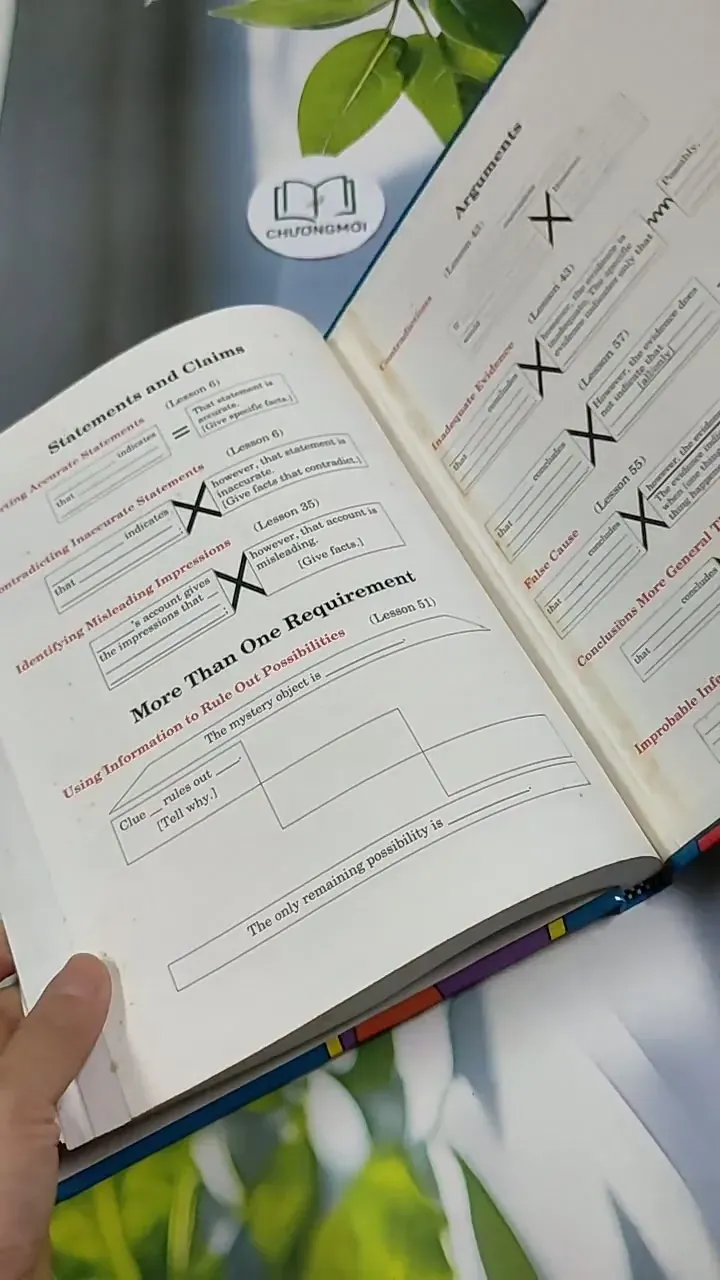 CHƯƠNGMỚI
Statements and Claims
Accurate Statements
(Lesson 6)
indicates
that
=
That statement is
accurate.
[Give specific facts.]
ontradicting Inaccurate Statements
(Lesson 6)
indicates
that
however, that statement is
inaccurate.
[Give facts that contradict.]
Identifying Misleading Impressions
(Lesson 35)
's account gives
the impressions that
however, that account is
misleading.
[Give facts.]
More Than One Requirement
Using Information to Rule Out Possibilities
(Lesson 51)
The mystery object is
Clue __ rules out ____.
[Tell why.]
The only remaining possibility is ________.
Arguments
Contradictions
Inadequate Evidence
(Lesson 43)
concludes
that
however, the evidence is
inadequate. The specific
evidence indicates only that
Possibly,
(Lesson 57)
concludes
that
However, the evidence does
not indicate that
[all/only]
False Cause
(Lesson 55)
concludes
that
Conclusions More General T
concludes
that
Improbable Info